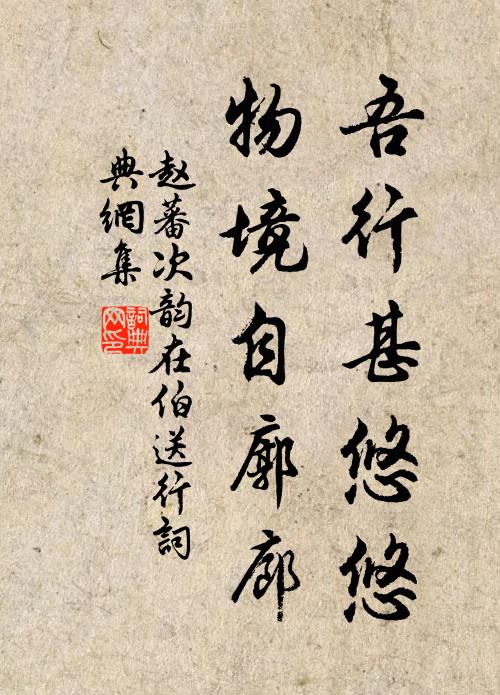 吾行甚悠悠
物境自廓廊
赵蕃次韵在伯送行词
典網集
詞典网印